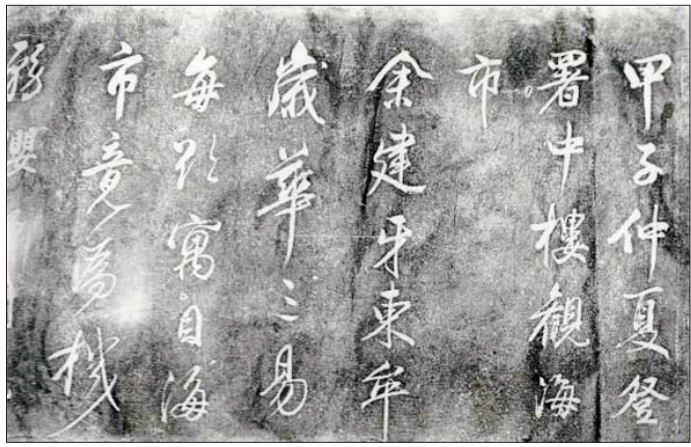 甲子仲夏登
署中樓觀海
市
余建牙東牟
歲華三易
每欲寓目海
市竟為機
務